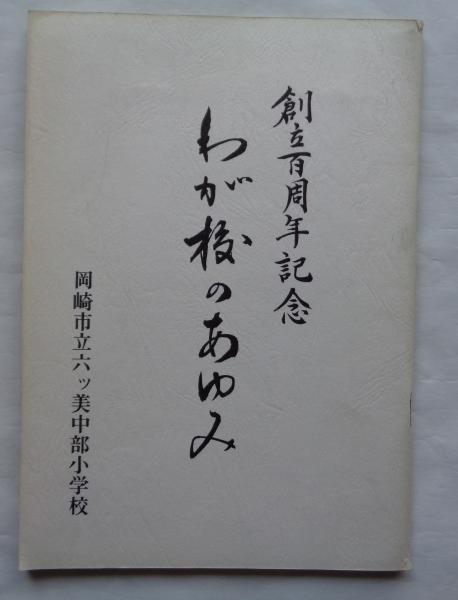 創立百周年記念
わが校のあゆみ
岡崎市立六ッ美中部小学校